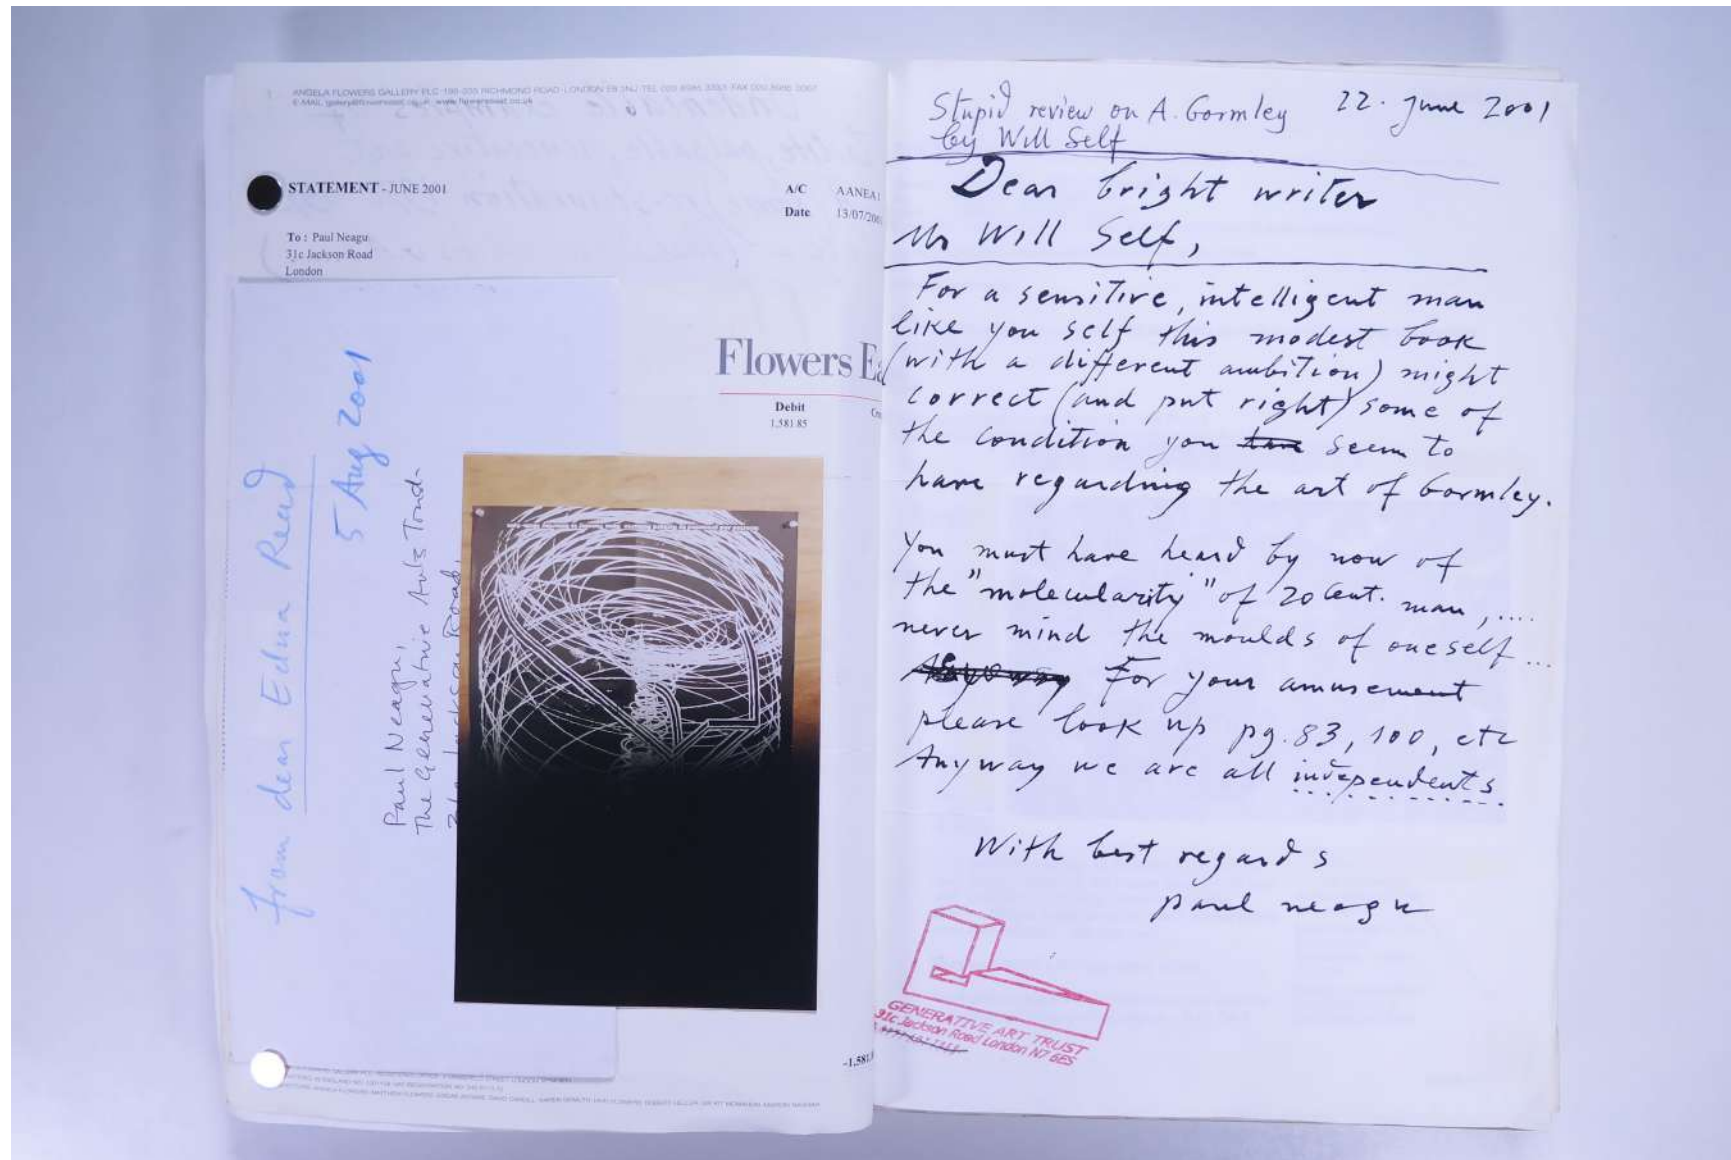 ANGELA FLOWERS GALLERY PLC
RICHMOND ROAD · LONDON E8 3NJ
STATEMENT - JUNE 2001
A/C AANEA1
Date 13/07/200
To : Paul Neagu
31c Jackson Road
London
Flowers Ea
Debit
1,581.85
-1,581.8
from dear Edna Read
5 Aug 2001
Paul Neagu,
The Generative Arts Trust
Jackson Road,
Stupid review on A. Gormley
by Will Self
22. June 2001
Dear bright writer
Mr Will Self,
For a sensitive, intelligent man
like you self this modest book
(with a different ambition) might
correct (and put right) some of
the condition you seem to
have regarding the art of Gormley.
You must have heard by now of
the "molecularity" of 20 Cent. man, ....
never mind the moulds of oneself ...
For your amusement
please look up pg. 83, 100, etc
Anyway we are all independents
With best regards
paul neagu
GENERATIVE ART TRUST
31c Jackson Road London N7 6ES